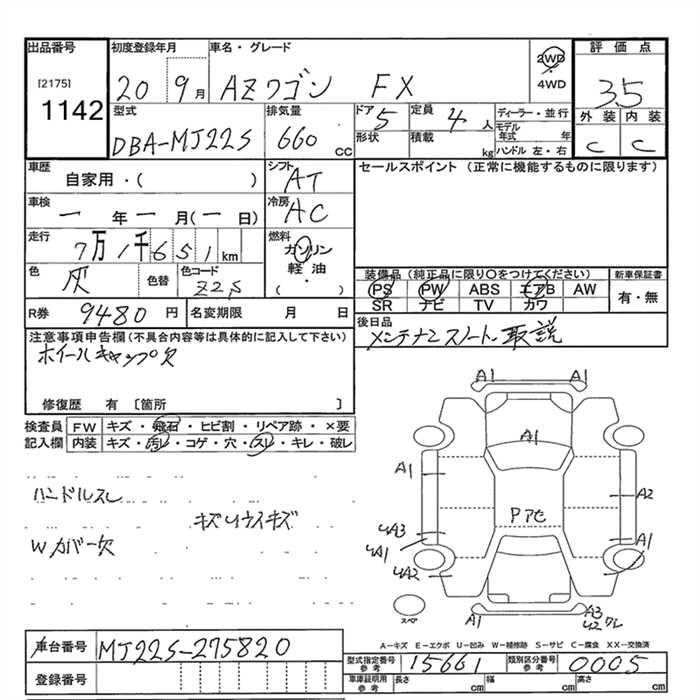 出品番号 初度登録年月 車名・グレード 2WD 評価点
[2175] 20 9月 AZワゴン FX 4WD 3.5
1142
型式 排気量 ドア 5 定員 4人 ディーラー・並行 外装 内装
DBA-MJ22S 660 CC 形状 積載 kg モデル年式 年 C C
ハンドル 左・右
車歴 シフト セールスポイント (正常に機能するものに限ります)
自家用・( ) AT
車検 冷房
ー年ー月(ー日) AC
走行 燃料
7万1千651km ガソリン
色 灰 色替 色コード Z2S 軽油・ 装備品 (純正品に限り○をつけてください) 新車保証書
( ) PS PW ABS エアB AW 有・無
SR ナビ TV カワ
R券 9480円 名変期限 月 日 後日品
注意事項申告欄 (不具合内容等は具体的に記入して下さい) メンテナンスノート、取説
ホイールキャップ欠
修復歴 有 [箇所 ]
検査員 FW キズ・飛石・ヒビ割・リペア跡・×要
記入欄 内装 キズ・汚レ・コゲ・穴・スレ・キレ・破レ
A1 A1
A1
A1 A2
ハンドルスレ
キズ Uウスキズ Pアセ
Wカバー欠
UA3 A1
UA1
UA2
スペア A1 A3
U2ワレ
A-キズ E-エクボ U-凹み W-補修跡 S-サビ C-腐食 XX-交換済
車台番号 MJ22S-275820
型式指定番号 参考 15661 類別区分番号 参考 0005
登録番号 車庫証明用 参考 長さ cm 幅 cm 高さ cm